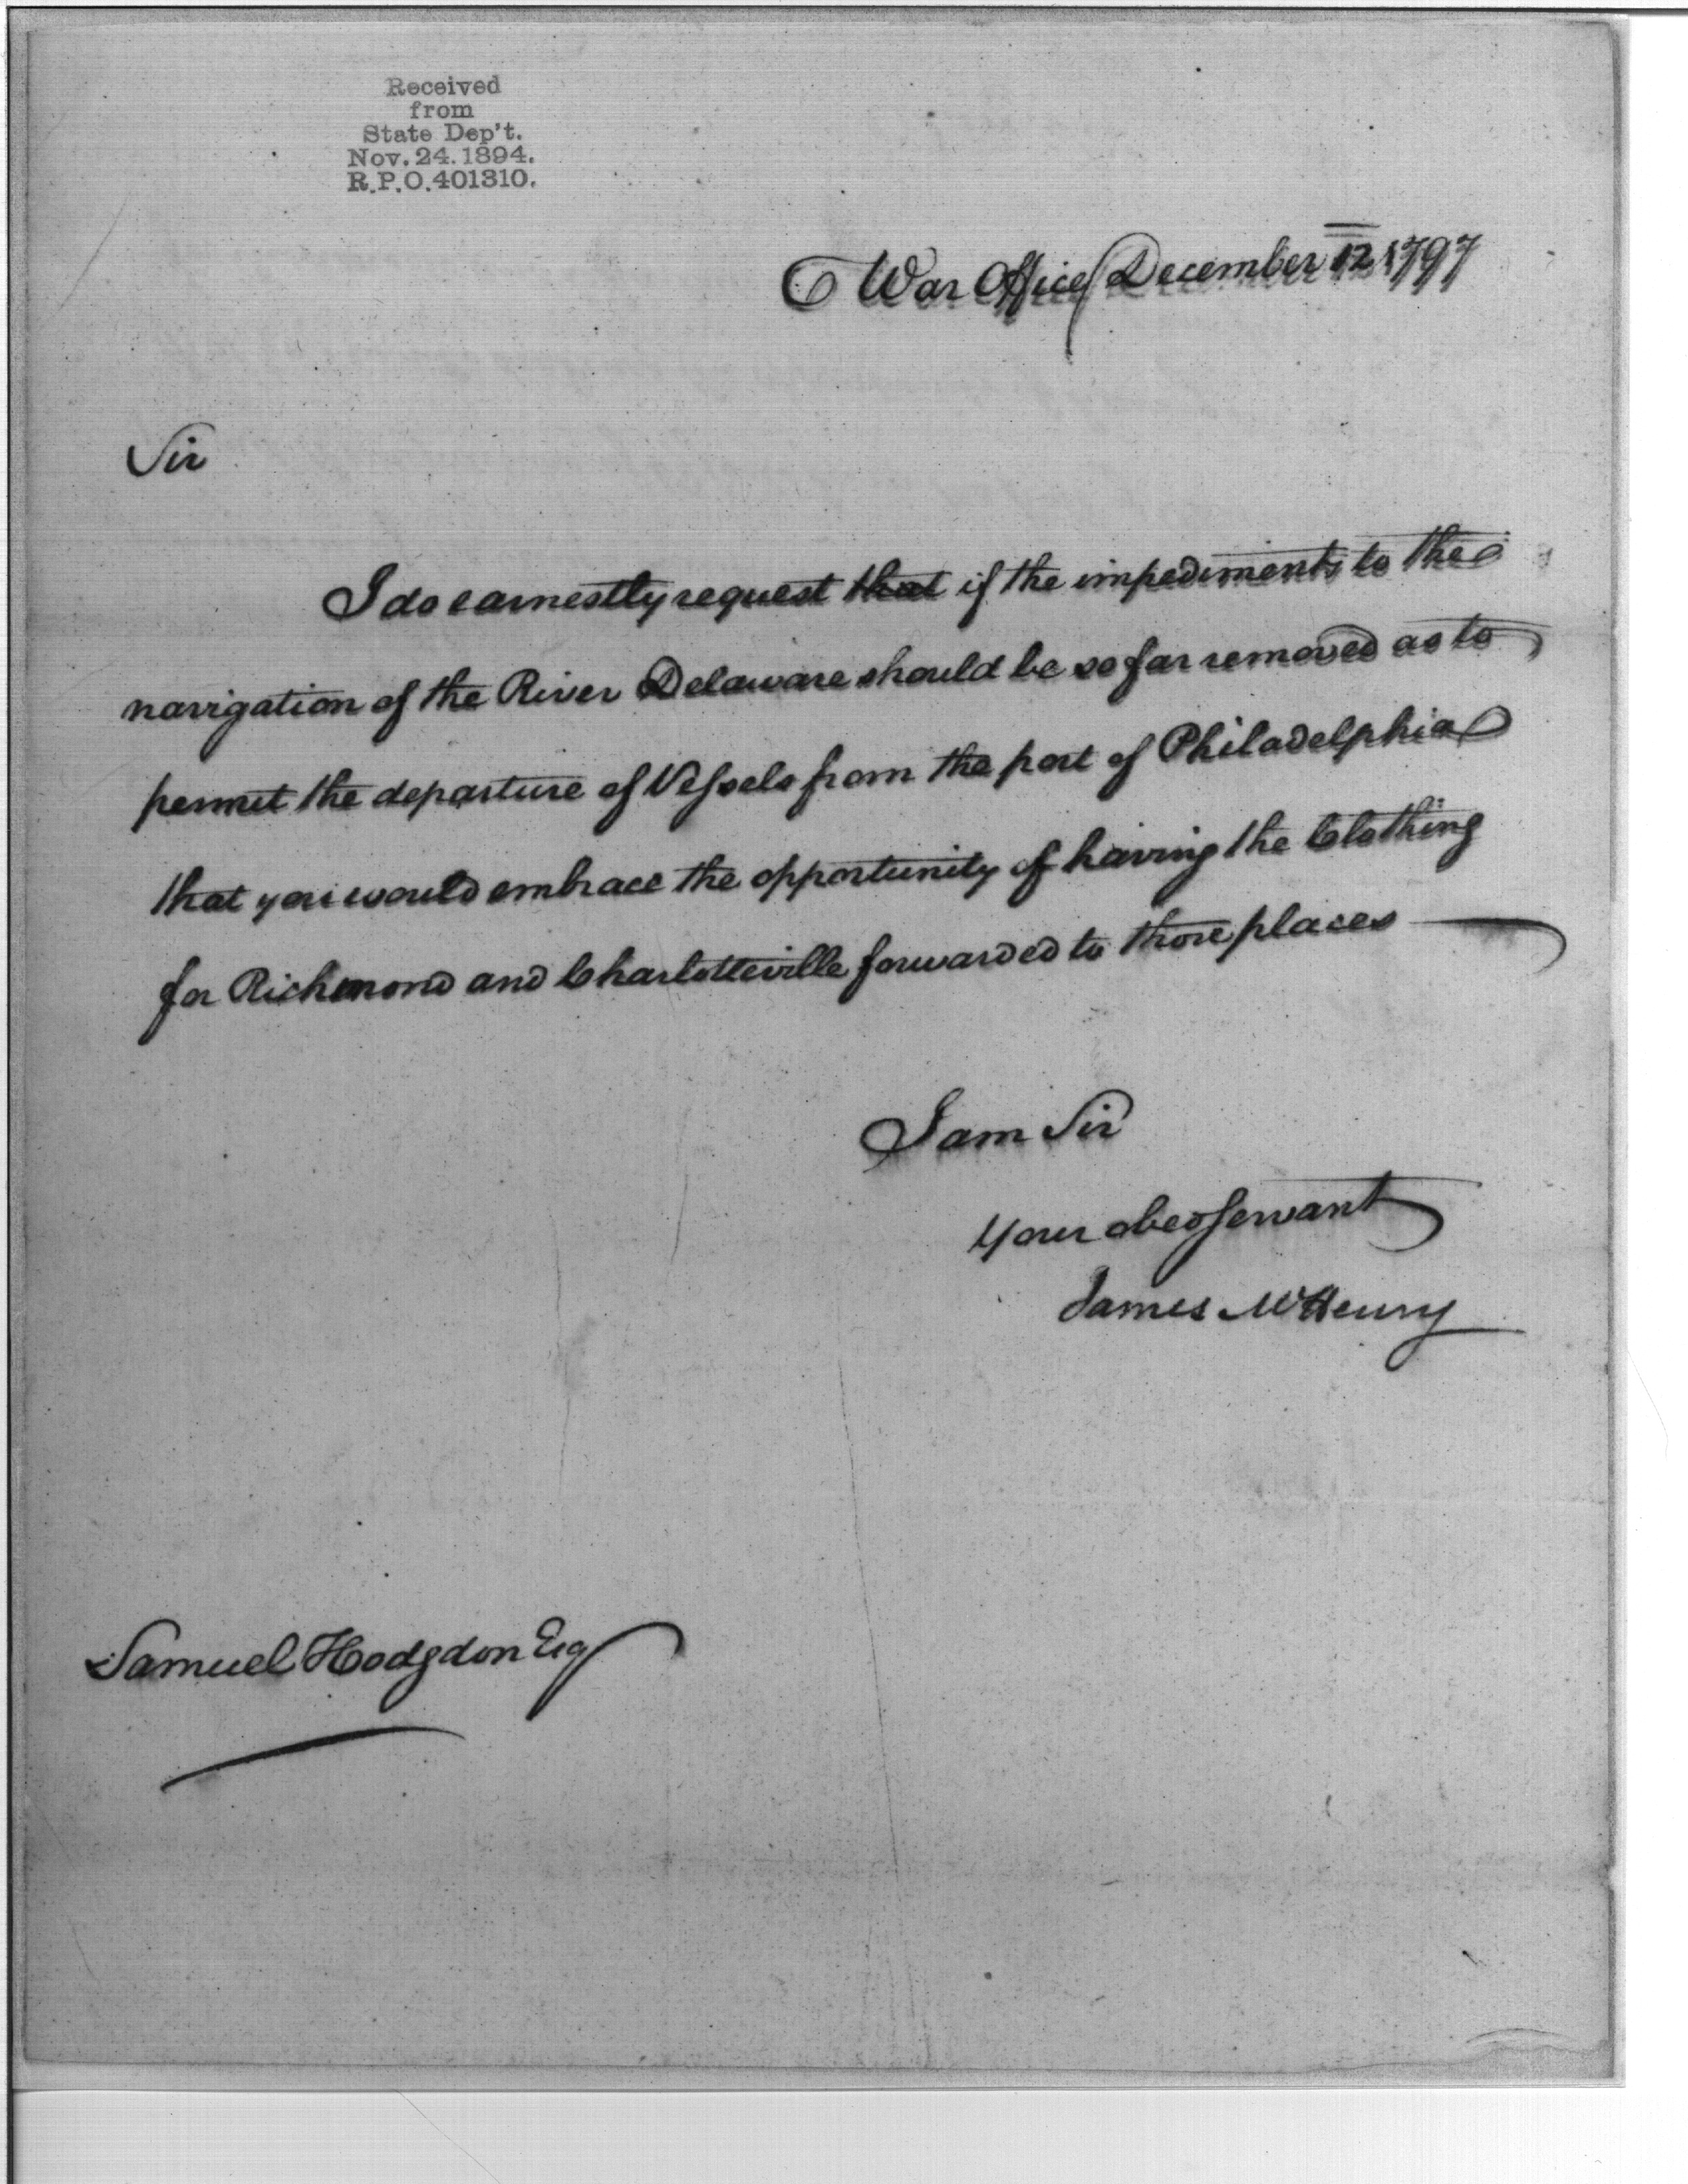 Received
from
State Dep't.
Nov. 24. 1894.
R.P.O. 401310.
War Office December 12 1797
Sir
I do earnestly request that if the impediments to the
navigation of the River Delaware should be so far removed as to
permit the departure of Vessels from the port of Philadelphia
that you would embrace the opportunity of having the Clothing
for Richmond and Charlotteville forwarded to those places
I am Sir
Your obed servant
James McHenry
Samuel Hodgdon Esq